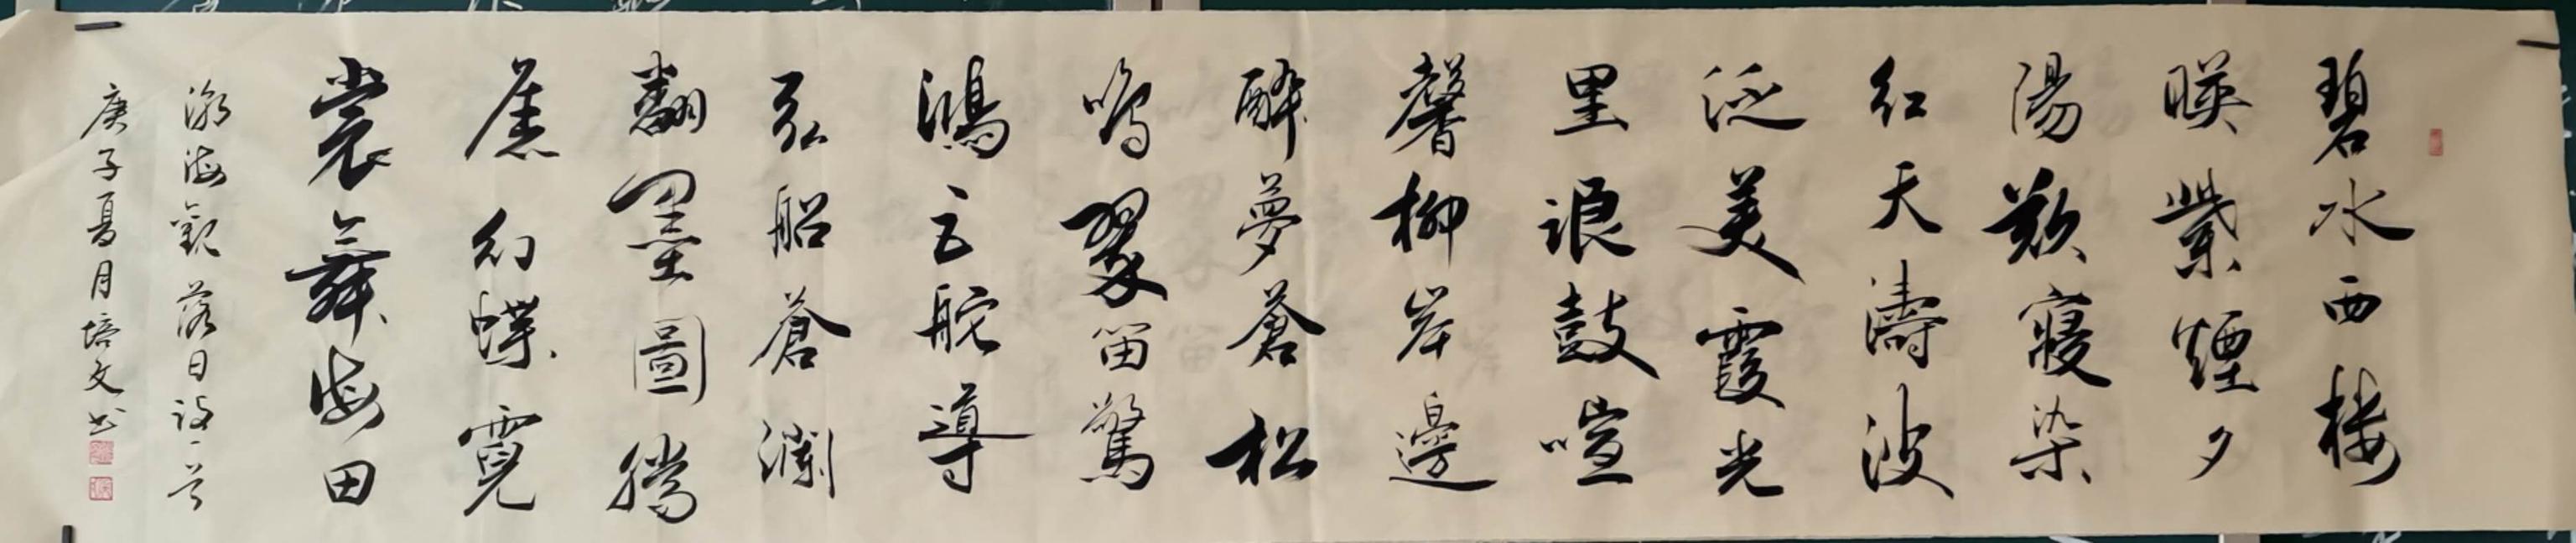 碧水西楼
暎紫煙夕
陽歎寢染
紅天濤波
泛美霞光
里浪鼓喧
馨柳岸邊
醉夢蒼松
鳴翠笛驚
鴻云舵導
弘船蒼瀾
翻墨圖騰
幻蝶霓
裳舞海田
渤海觀落日詩一首
庚子夏月培文书